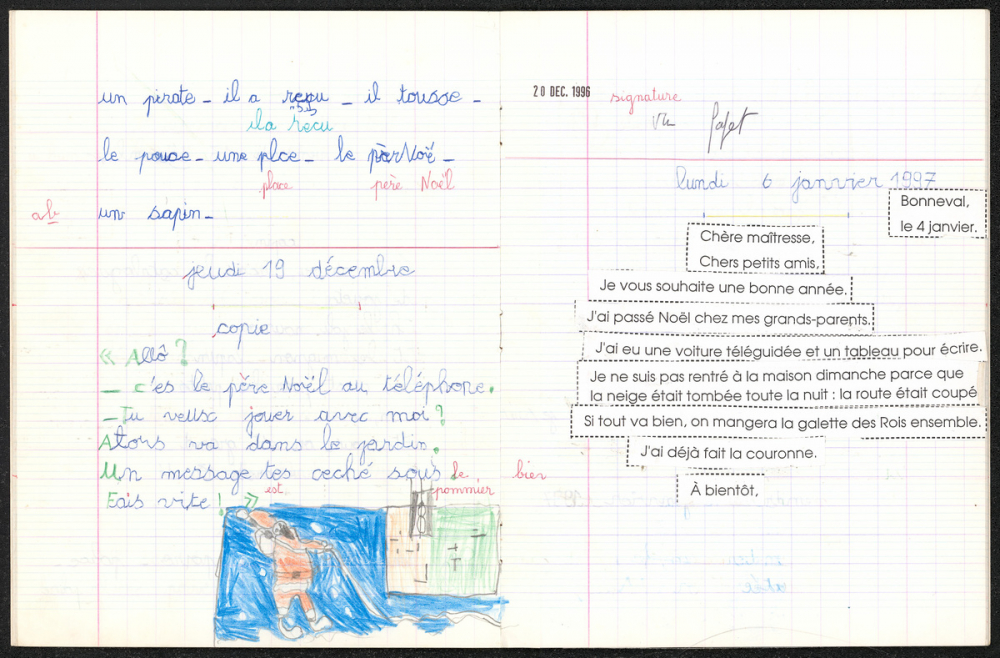 un pirate - il a reçu - il tousse -
il a reçu
le pouce - une plce - le pèrNoë -
place père Noël
ab un sapin -
jeudi 19 décembre
copie
« Allô ?
- c'es le père Noël au téléphone.
- Tu veux jouer avec moi ?
Alors va dans le jardin.
Un message tes ceché sous le bien
est pommier
Fais vite ! »
20 DEC. 1996 signature
vu
lundi 6 janvier 1997
Bonneval,
le 4 janvier.
Chère maîtresse,
Chers petits amis,
Je vous souhaite une bonne année.
J'ai passé Noël chez mes grands-parents.
J'ai eu une voiture téléguidée et un tableau pour écrire.
Je ne suis pas rentré à la maison dimanche parce que
la neige était tombée toute la nuit : la route était coupé
Si tout va bien, on mangera la galette des Rois ensemble.
J'ai déjà fait la couronne.
À bientôt,